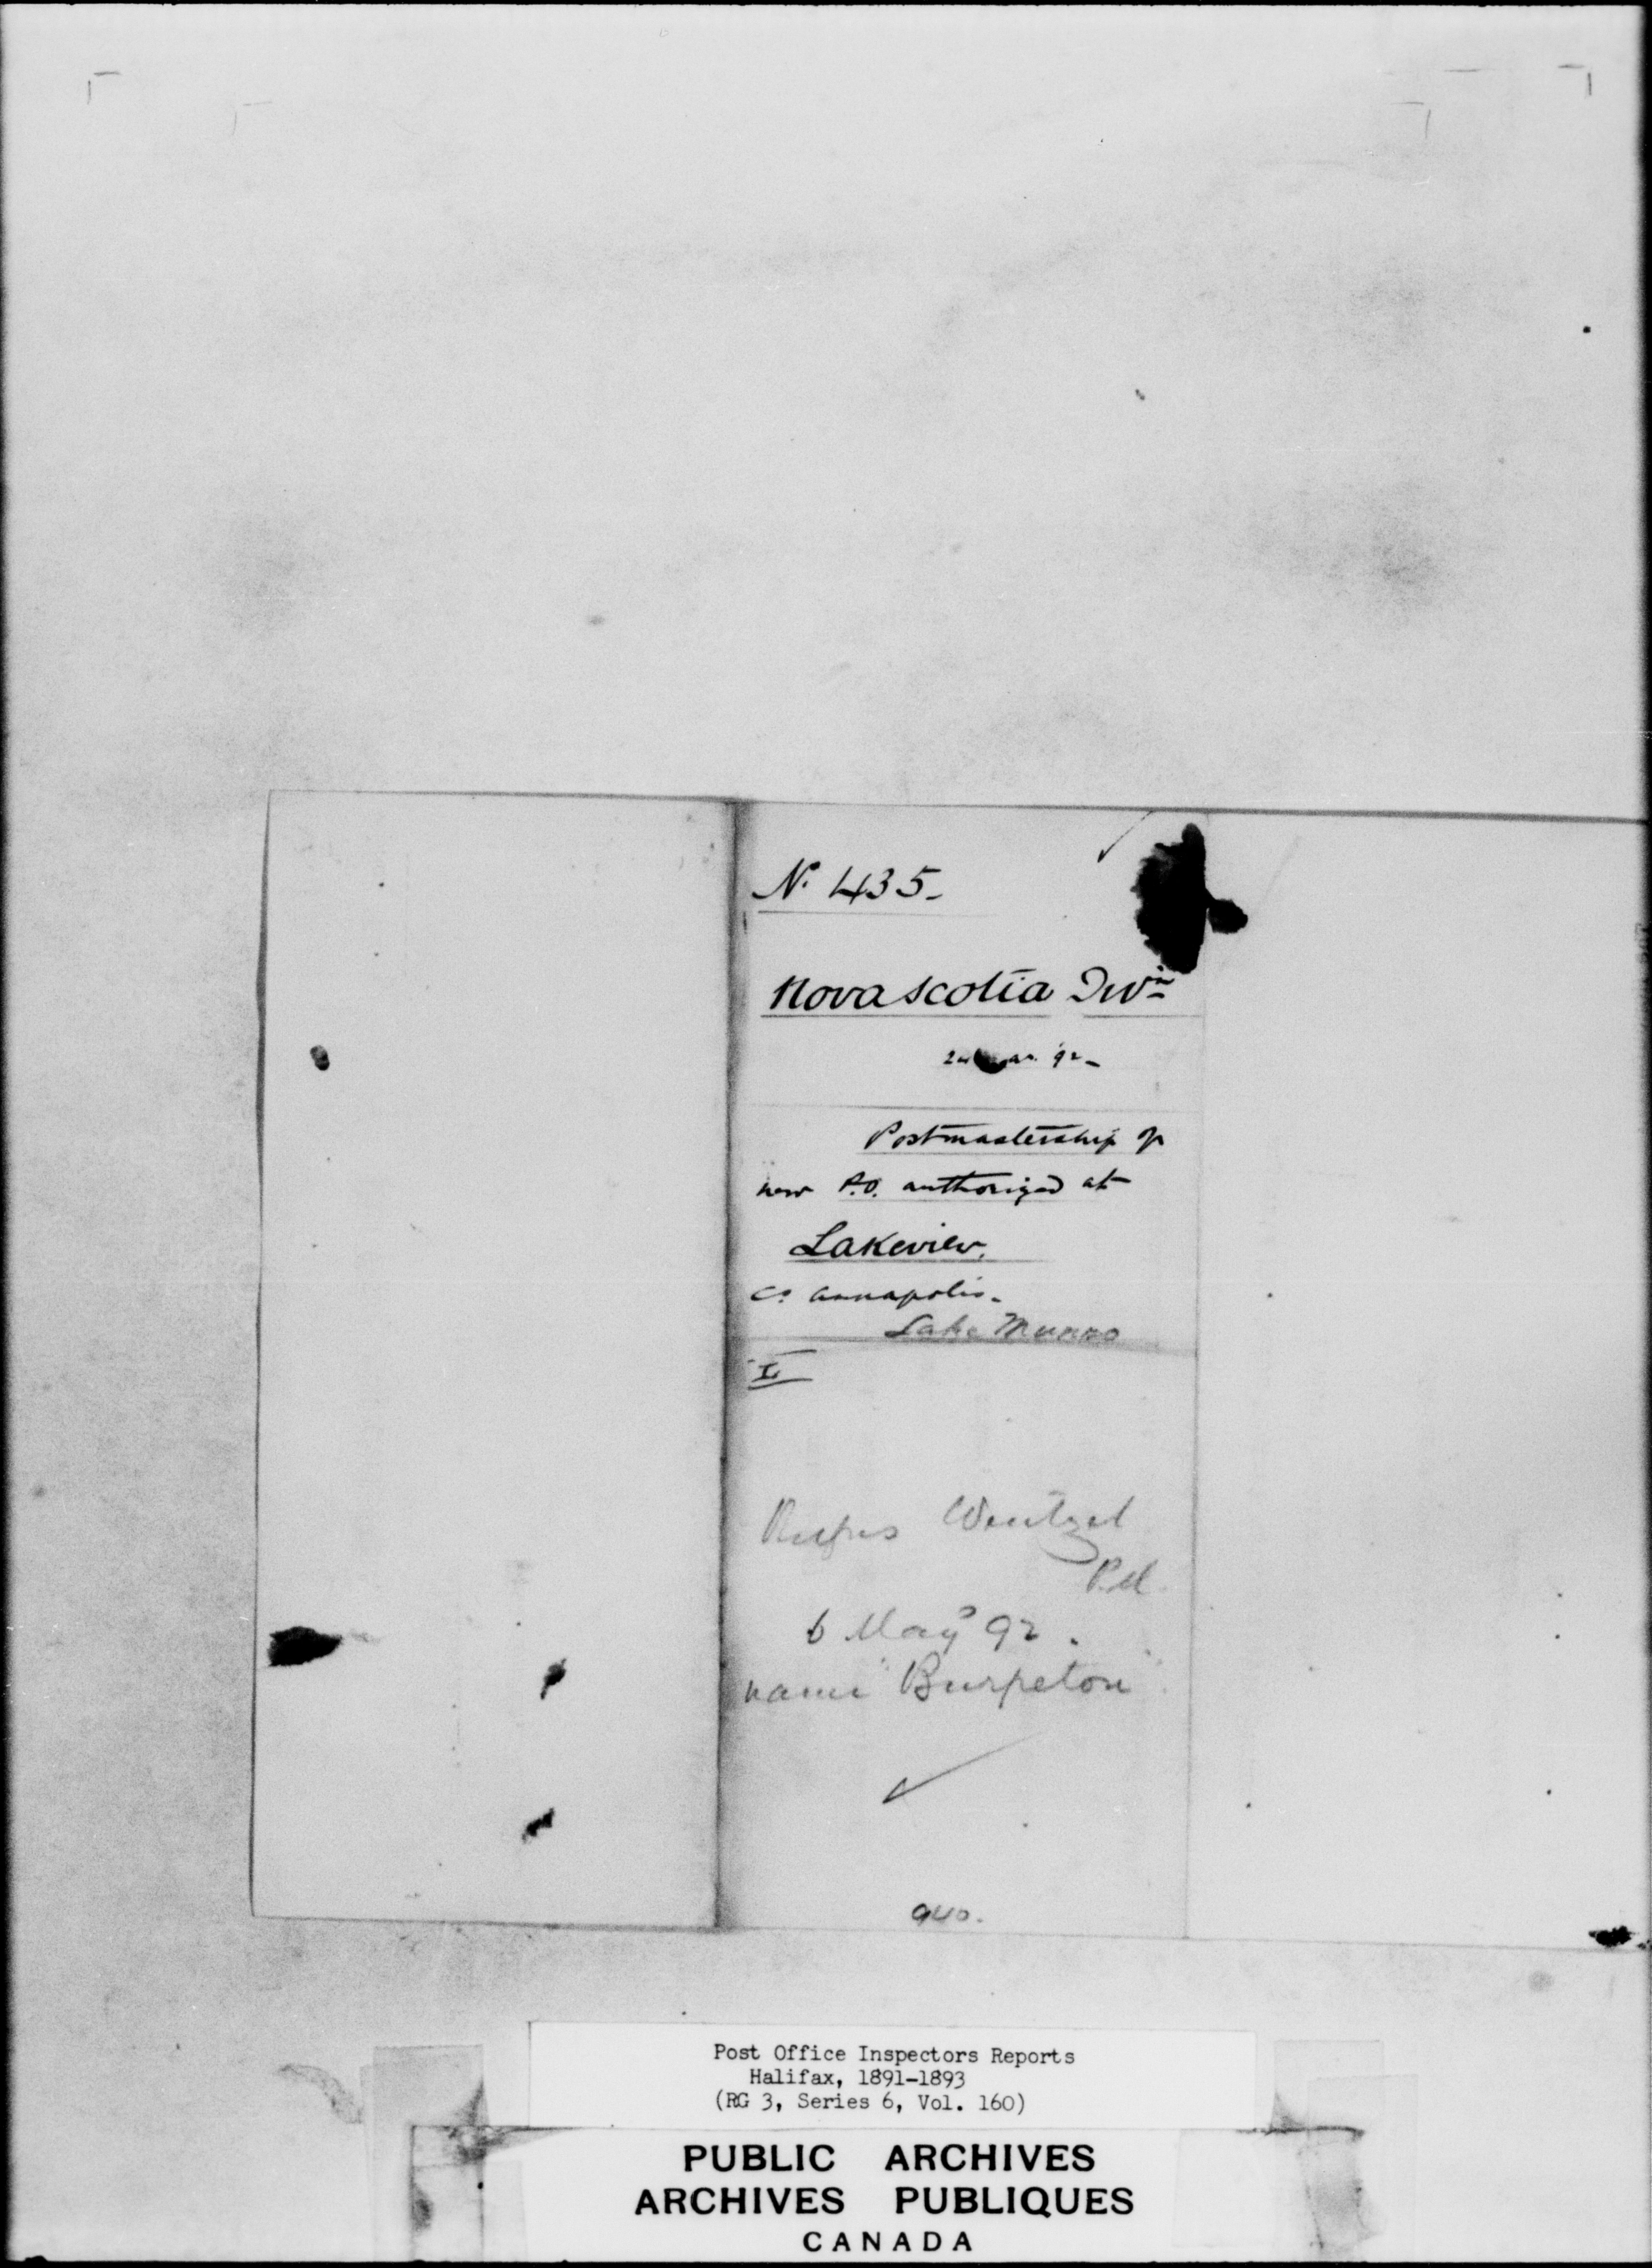 No. 435.
Nova Scotia Divn
92
Postmastership of
new P.O. authorized at
Lakeview,
Co Annapolis.
Lake Munro
I
Rufus Wentzel
P.M.
6 May 92.
name "Burpeton"
940.
Post Office Inspectors Reports
Halifax, 1891-1893
(RG 3, Series 6, Vol. 160)
PUBLIC ARCHIVES
ARCHIVES PUBLIQUES
CANADA